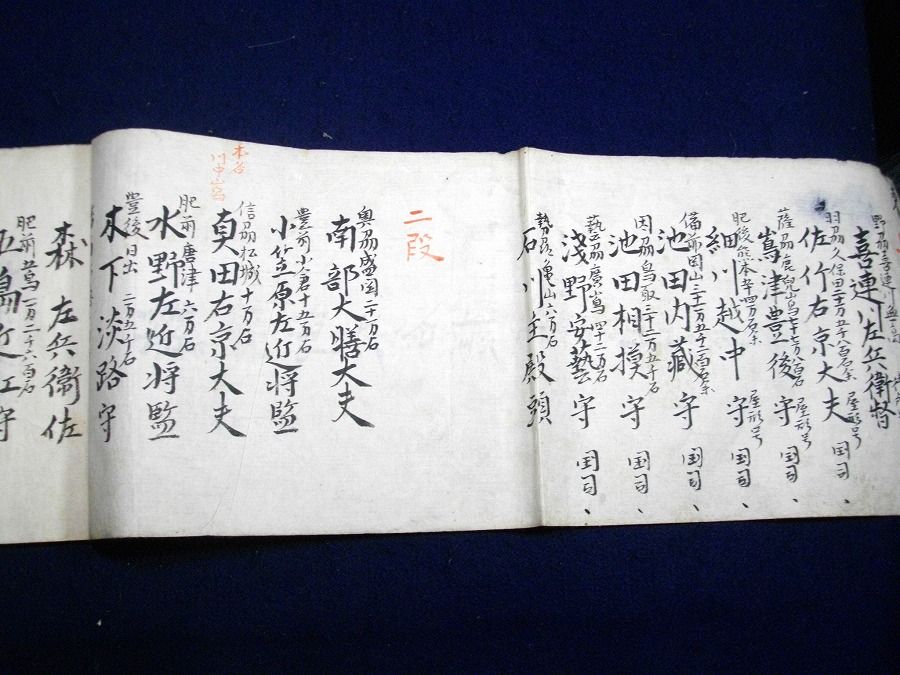 喜連川左兵衛督
羽刕久保田二十万五千八百石余
佐竹右京大夫 屋形号 国司、
薩刕鹿児島七十七万八百石
嶌津豊後守 屋形号 国司、
肥後熊本五十四万石余
細川越中守 屋形号 国司、
備前岡山三十一万五千二百石余
池田内藏守 国司、
因刕鳥取三十二万五千石
池田相摸守 国司、
藝刕廣嶌四十二万六千石
淺野安藝守 国司、
勢刕亀山六万石
石川主殿頭
二段
奥刕盛岡二十万石
南部大膳大夫
豊前小倉十五万石
小笠原左近将監
本谷
川中嶌
信刕松城十万石
真田右京大夫
肥前唐津六万石
水野左近将監
豊後日出二万五千石
木下淡路守
森左兵衞佐
肥前五嶌一万二千六百石
五嶋近江守